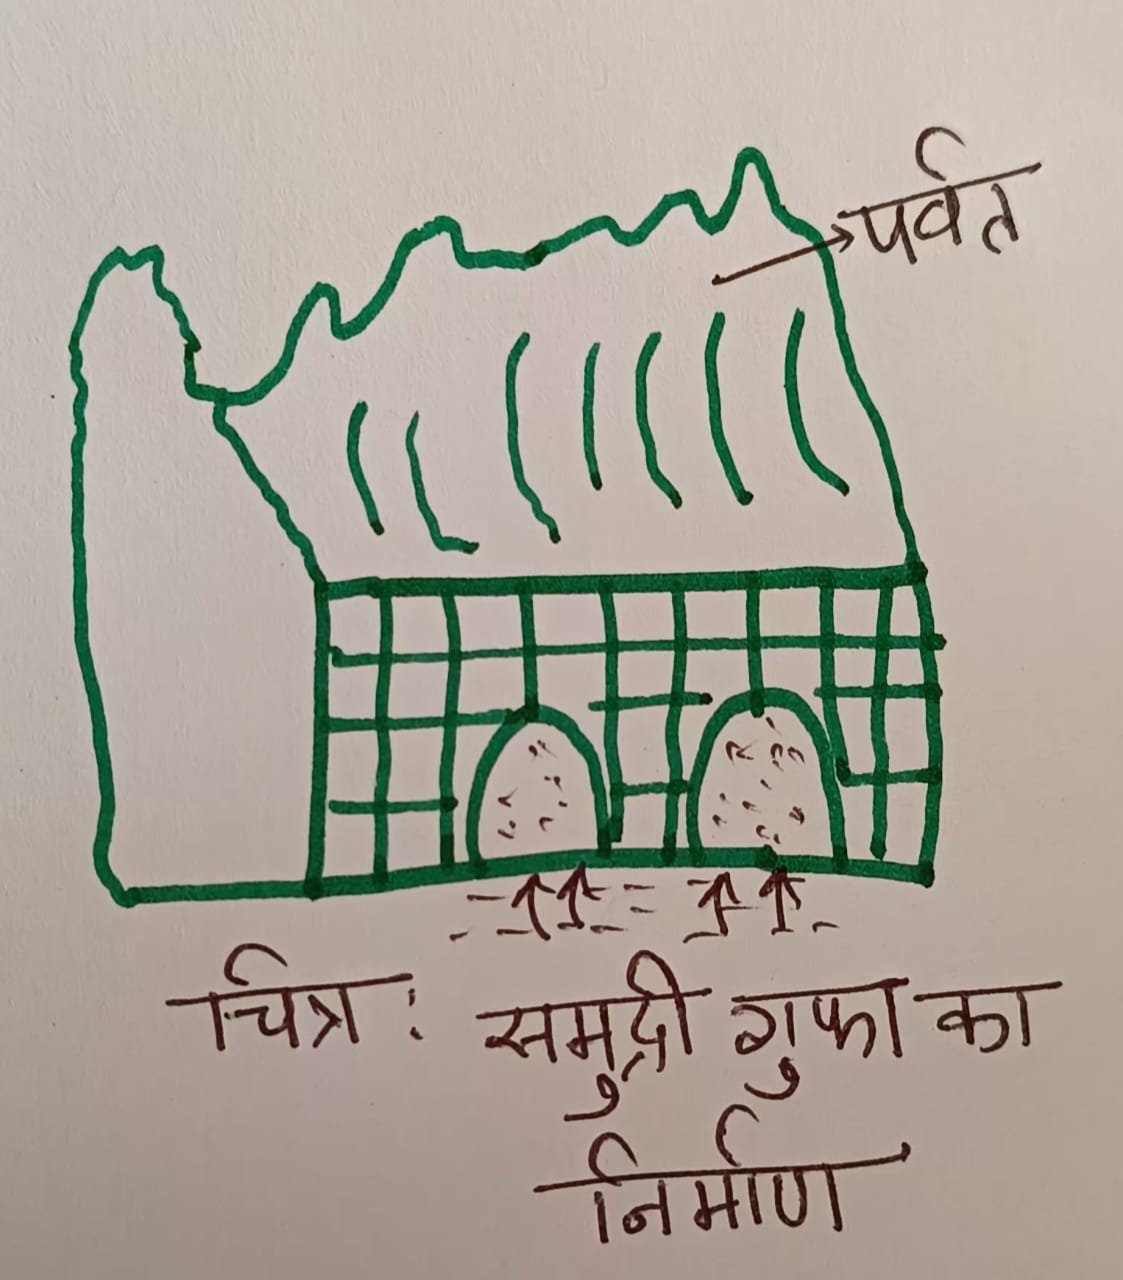 पर्वत
चित्र : समुद्री गुफा का
निर्माण